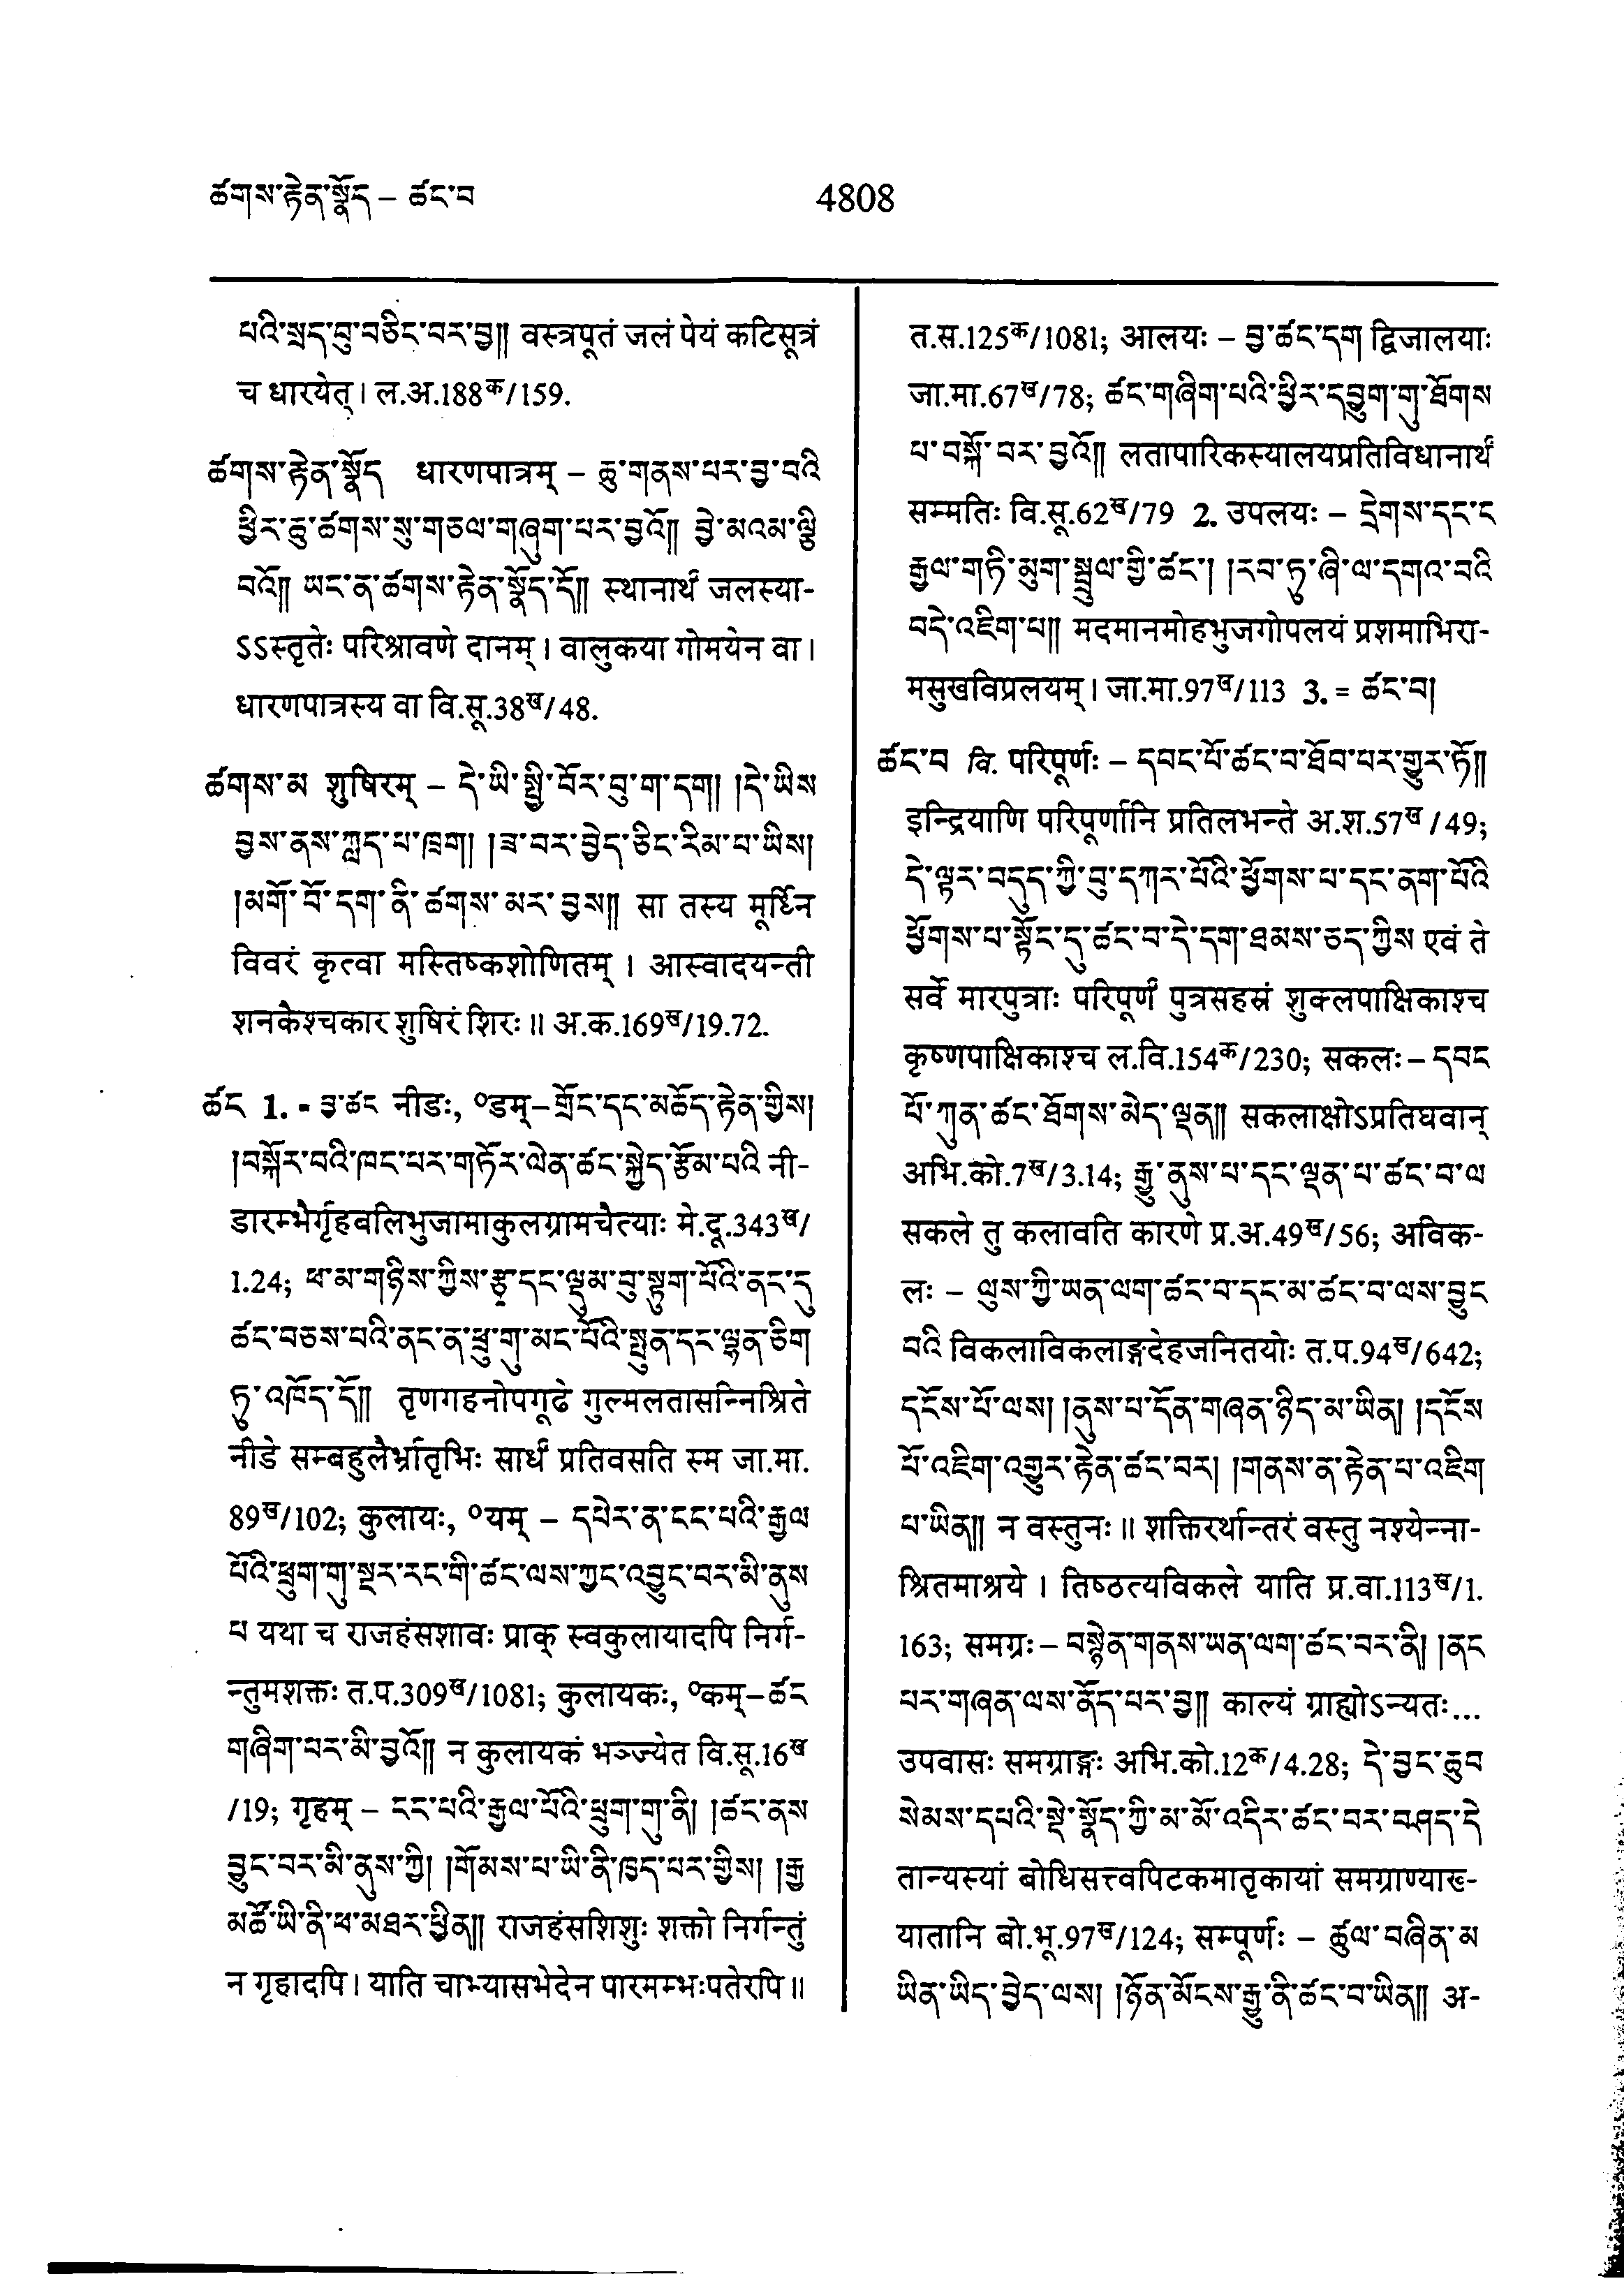 ཚགས་རྟེན་སྣོད – ཚང་བ
4808
པའི་སྲད་བུ་བཅིང་བར་བྱ༎ वस्त्रपूतं जलं पेयं कटिसूत्रं
च धारयेत् । ल.अ.188क/159.
ཚགས་རྟེན་སྣོད धारणपात्रम् – ཆུ་གནས་པར་བྱ་བའི
ཕྱིར་ཆུ་ཚགས་སུ་གཅལ་གཞུག་པར་བྱའོ༎ བྱེ་མའམ་ལྕི
བའོ༎ ཡང་ན་ཚགས་རྟེན་སྣོད་དོ༎ स्थानार्थं जलस्या-
ऽऽस्तृतेः परिश्रावणे दानम् । वालुकया गोमयेन वा ।
धारणपात्रस्य वा वि.सू.38ख/48.
ཚགས་མ शुषिरम् – དེ་ཡི་སྤྱི་བོར་བུ་ག་དག། །དེ་ཡིས
བྱས་ནས་ཀླད་པ་ཁྲག། །ཟ་བར་བྱེད་ཅིང་རིམ་པ་ཡིས།
།མགོ་བོ་དག་ནི་ཚགས་མར་བྱས༎ सा तस्य मूर्ध्नि
विवरं कृत्वा मस्तिष्कशोणितम् । आस्वादयन्ती
शनकैश्चकार शुषिरं शिरः ॥ अ.क.169ख/19.72.
ཚང 1. = བྱ་ཚང नीडः, ०डम्–གྲོང་དང་མཆོད་རྟེན་གྱིས།
།བསྐོར་བའི་ཁང་པར་གཏོར་ལེན་ཚང་སྐྱེད་རྩོམ་པའི नी-
डारम्भैर्गृहवलिभुजामाकुलग्रामचैत्याः मे.दू.343ख/
1.24; ཕ་མ་གཉིས་ཀྱིས་རྩྭ་དང་ལྡུམ་བུ་སྟུག་པོའི་ནང་དུ
ཚང་བཅས་པའི་ནང་ན་ཕྲུ་གུ་མང་པོའི་སྤུན་དང་ལྷན་ཅིག
ཏུ་འཁོད་དོ༎ तृणगहनोपगूढे गुल्मलतासन्निश्रिते
नीडे सम्बहुलैर्भ्रातृभिः सार्धं प्रतिवसति स्म जा.मा.
89ख/102; कुलायः, ०यम् – དཔེར་ན་ངང་པའི་རྒྱལ
པོའི་ཕྲུག་གུ་སྔར་རང་གི་ཚང་ལས་ཀྱང་འབྱུང་བར་མི་ནུས
པ यथा च राजहंसशावः प्राक् स्वकुलायादपि निर्ग-
न्तुमशक्तः त.प.309ख/1081; कुलायकः, ०कम्–ཚང
གཞིག་པར་མི་བྱའོ༎ न कुलायकं भञ्ज्येत वि.सू.16ख
/19; गृहम् – ངང་པའི་རྒྱལ་པོའི་ཕྲུག་གུ་ནི། །ཚང་ནས
བྱུང་བར་མི་ནུས་ཀྱི། །གོམས་པ་ཡི་ནི་ཁྱད་པར་གྱིས། །རྒྱ
མཚོ་ཡི་ནི་ཕ་མཐར་ཕྱིན༎ राजहंसशिशुः शक्तो निर्गन्तुं
न गृहादपि । याति चाभ्यासभेदेन पारमम्भःपतेरपि ॥
त.स.125क/1081; आलयः – བྱ་ཚང་དག द्विजालयाः
जा.मा.67ख/78; ཚང་གཞིག་པའི་ཕྱིར་དབྱུག་གུ་ཐོགས
པ་བསྐོ་བར་བྱའོ༎ लतापारिकस्यालयप्रतिविधानार्थं
सम्मतिः वि.सू.62ख/79 2. उपलयः – དྲེགས་དང་ང
རྒྱལ་གཏི་མུག་སྦྲུལ་གྱི་ཚང་། །རབ་ཏུ་ཞི་ལ་དགའ་བའི
བདེ་འཇིག་པ༎ मदमानमोहभुजगोपलयं प्रशमाभिरा-
मसुखविप्रलयम् । जा.मा.97ख/113 3. = ཚང་བ།
ཚང་བ वि. परिपूर्णः – དབང་པོ་ཚང་བ་ཐོབ་པར་གྱུར་ཏོ༎
इन्द्रियाणि परिपूर्णानि प्रतिलभन्ते अ.श.57ख/49;
དེ་ལྟར་བདུད་ཀྱི་བུ་དཀར་པོའི་ཕྱོགས་པ་དང་ནག་པོའི
ཕྱོགས་པ་སྟོང་དུ་ཚང་བ་དེ་དག་ཐམས་ཅད་ཀྱིས एवं ते
सर्वे मारपुत्राः परिपूर्णं पुत्रसहस्रं शुक्लपाक्षिकाश्च
कृष्णपाक्षिकाश्च ल.वि.154क/230; सकलः – དབང
པོ་ཀུན་ཚང་ཐོགས་མེད་ལྡན༎ सकलाक्षोऽप्रतिघवान्
अभि.को.7ख/3.14; རྒྱུ་ནུས་པ་དང་ལྡན་པ་ཚང་བ་ལ
सकले तु कलावति कारणे प्र.अ.49ख/56; अविक-
लः – ལུས་ཀྱི་ཡན་ལག་ཚང་བ་དང་མ་ཚང་བ་ལས་བྱུང
བའི विकलाविकलाङ्गदेहजनितयोः त.प.94ख/642;
དངོས་པོ་ལས། །ནུས་པ་དོན་གཞན་ཉིད་མ་ཡིན། །དངོས
པོ་འཇིག་འགྱུར་རྟེན་ཚང་བར། །གནས་ན་རྟེན་པ་འཇིག
པ་ཡིན༎ न वस्तुनः ॥ शक्तिरर्थान्तरं वस्तु नश्येन्ना-
श्रितमाश्रये । तिष्ठत्यविकले याति प्र.वा.113ख/1.
163; समग्रः – བསྙེན་གནས་ཡན་ལག་ཚང་བར་ནི། །ནང
པར་གཞན་ལས་ནོད་པར་བྱ༎ काल्यं ग्राह्योऽन्यतः...
उपवासः समग्राङ्गः अभि.को.12क/4.28; དེ་བྱང་ཆུབ
སེམས་དཔའི་སྡེ་སྣོད་ཀྱི་མ་མོ་འདིར་ཚང་བར་བཤད་དེ
तान्यस्यां बोधिसत्त्वपिटकमातृकायां समग्राण्याख-
यातानि बो.भू.97ख/124; सम्पूर्णः – ཚུལ་བཞིན་མ
ཡིན་ཡིད་བྱེད་ལས། །ཉོན་མོངས་རྒྱུ་ནི་ཚང་བ་ཡིན༎ अ-